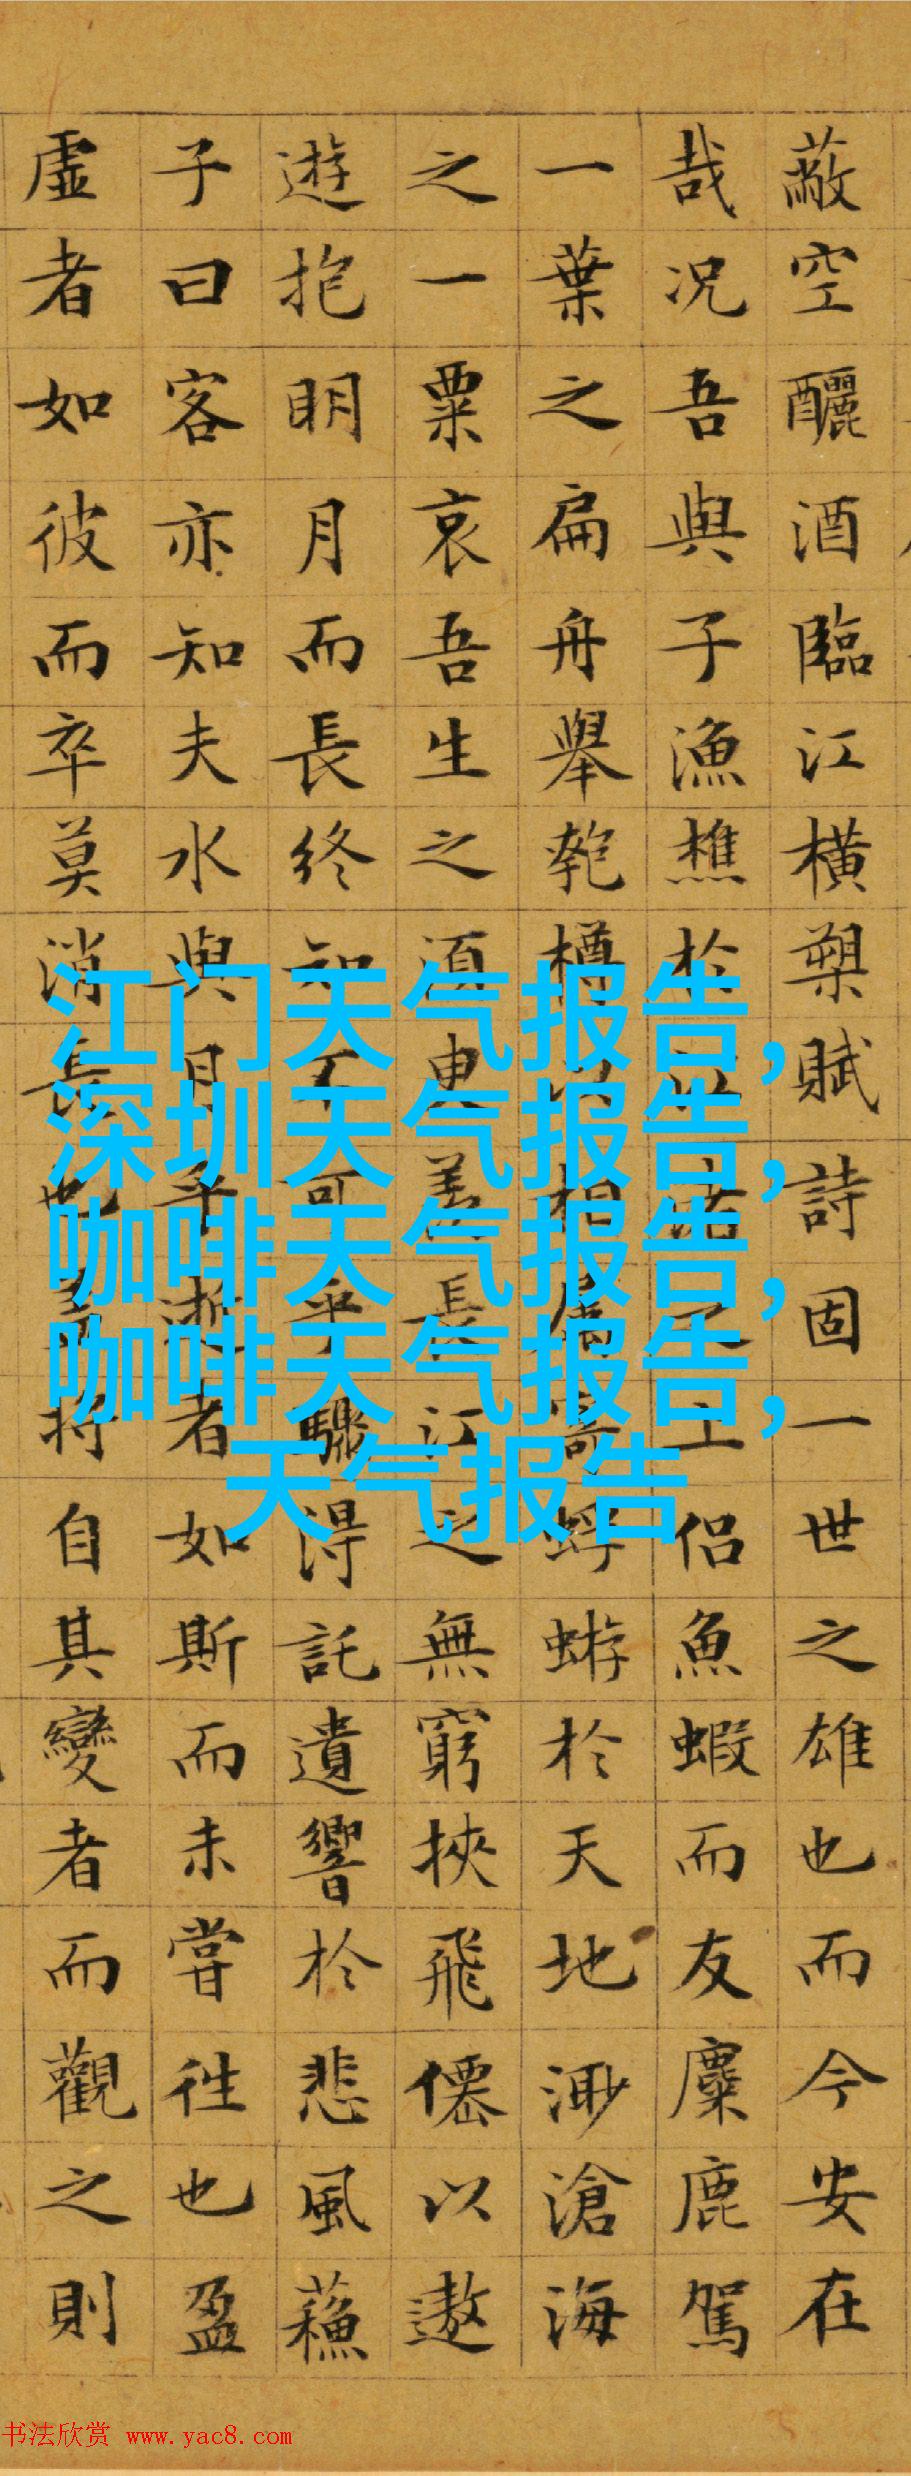 蔽空釃酒臨江橫槊賦詩固一世之雄也而今安在
哉况吾與子漁樵於江渚之上侶魚蝦而友麋鹿駕
一葉之扁舟舉匏樽以相屬寄蜉蝣於天地渺滄海
之一粟哀吾生之須臾羨長江之無窮挾飛僊以遨
遊抱明月而長終知不可乎驟得託遺響於悲風蘓
子曰客亦知夫水與月乎逝者如斯而未嘗往也盈
虛者如彼而卒莫消長也蓋將自其變者而觀之則
江门天气报告,
深圳天气报告,
咖啡天气报告,
咖啡天气报告,
天气报告
书法欣赏 www.yac8.com